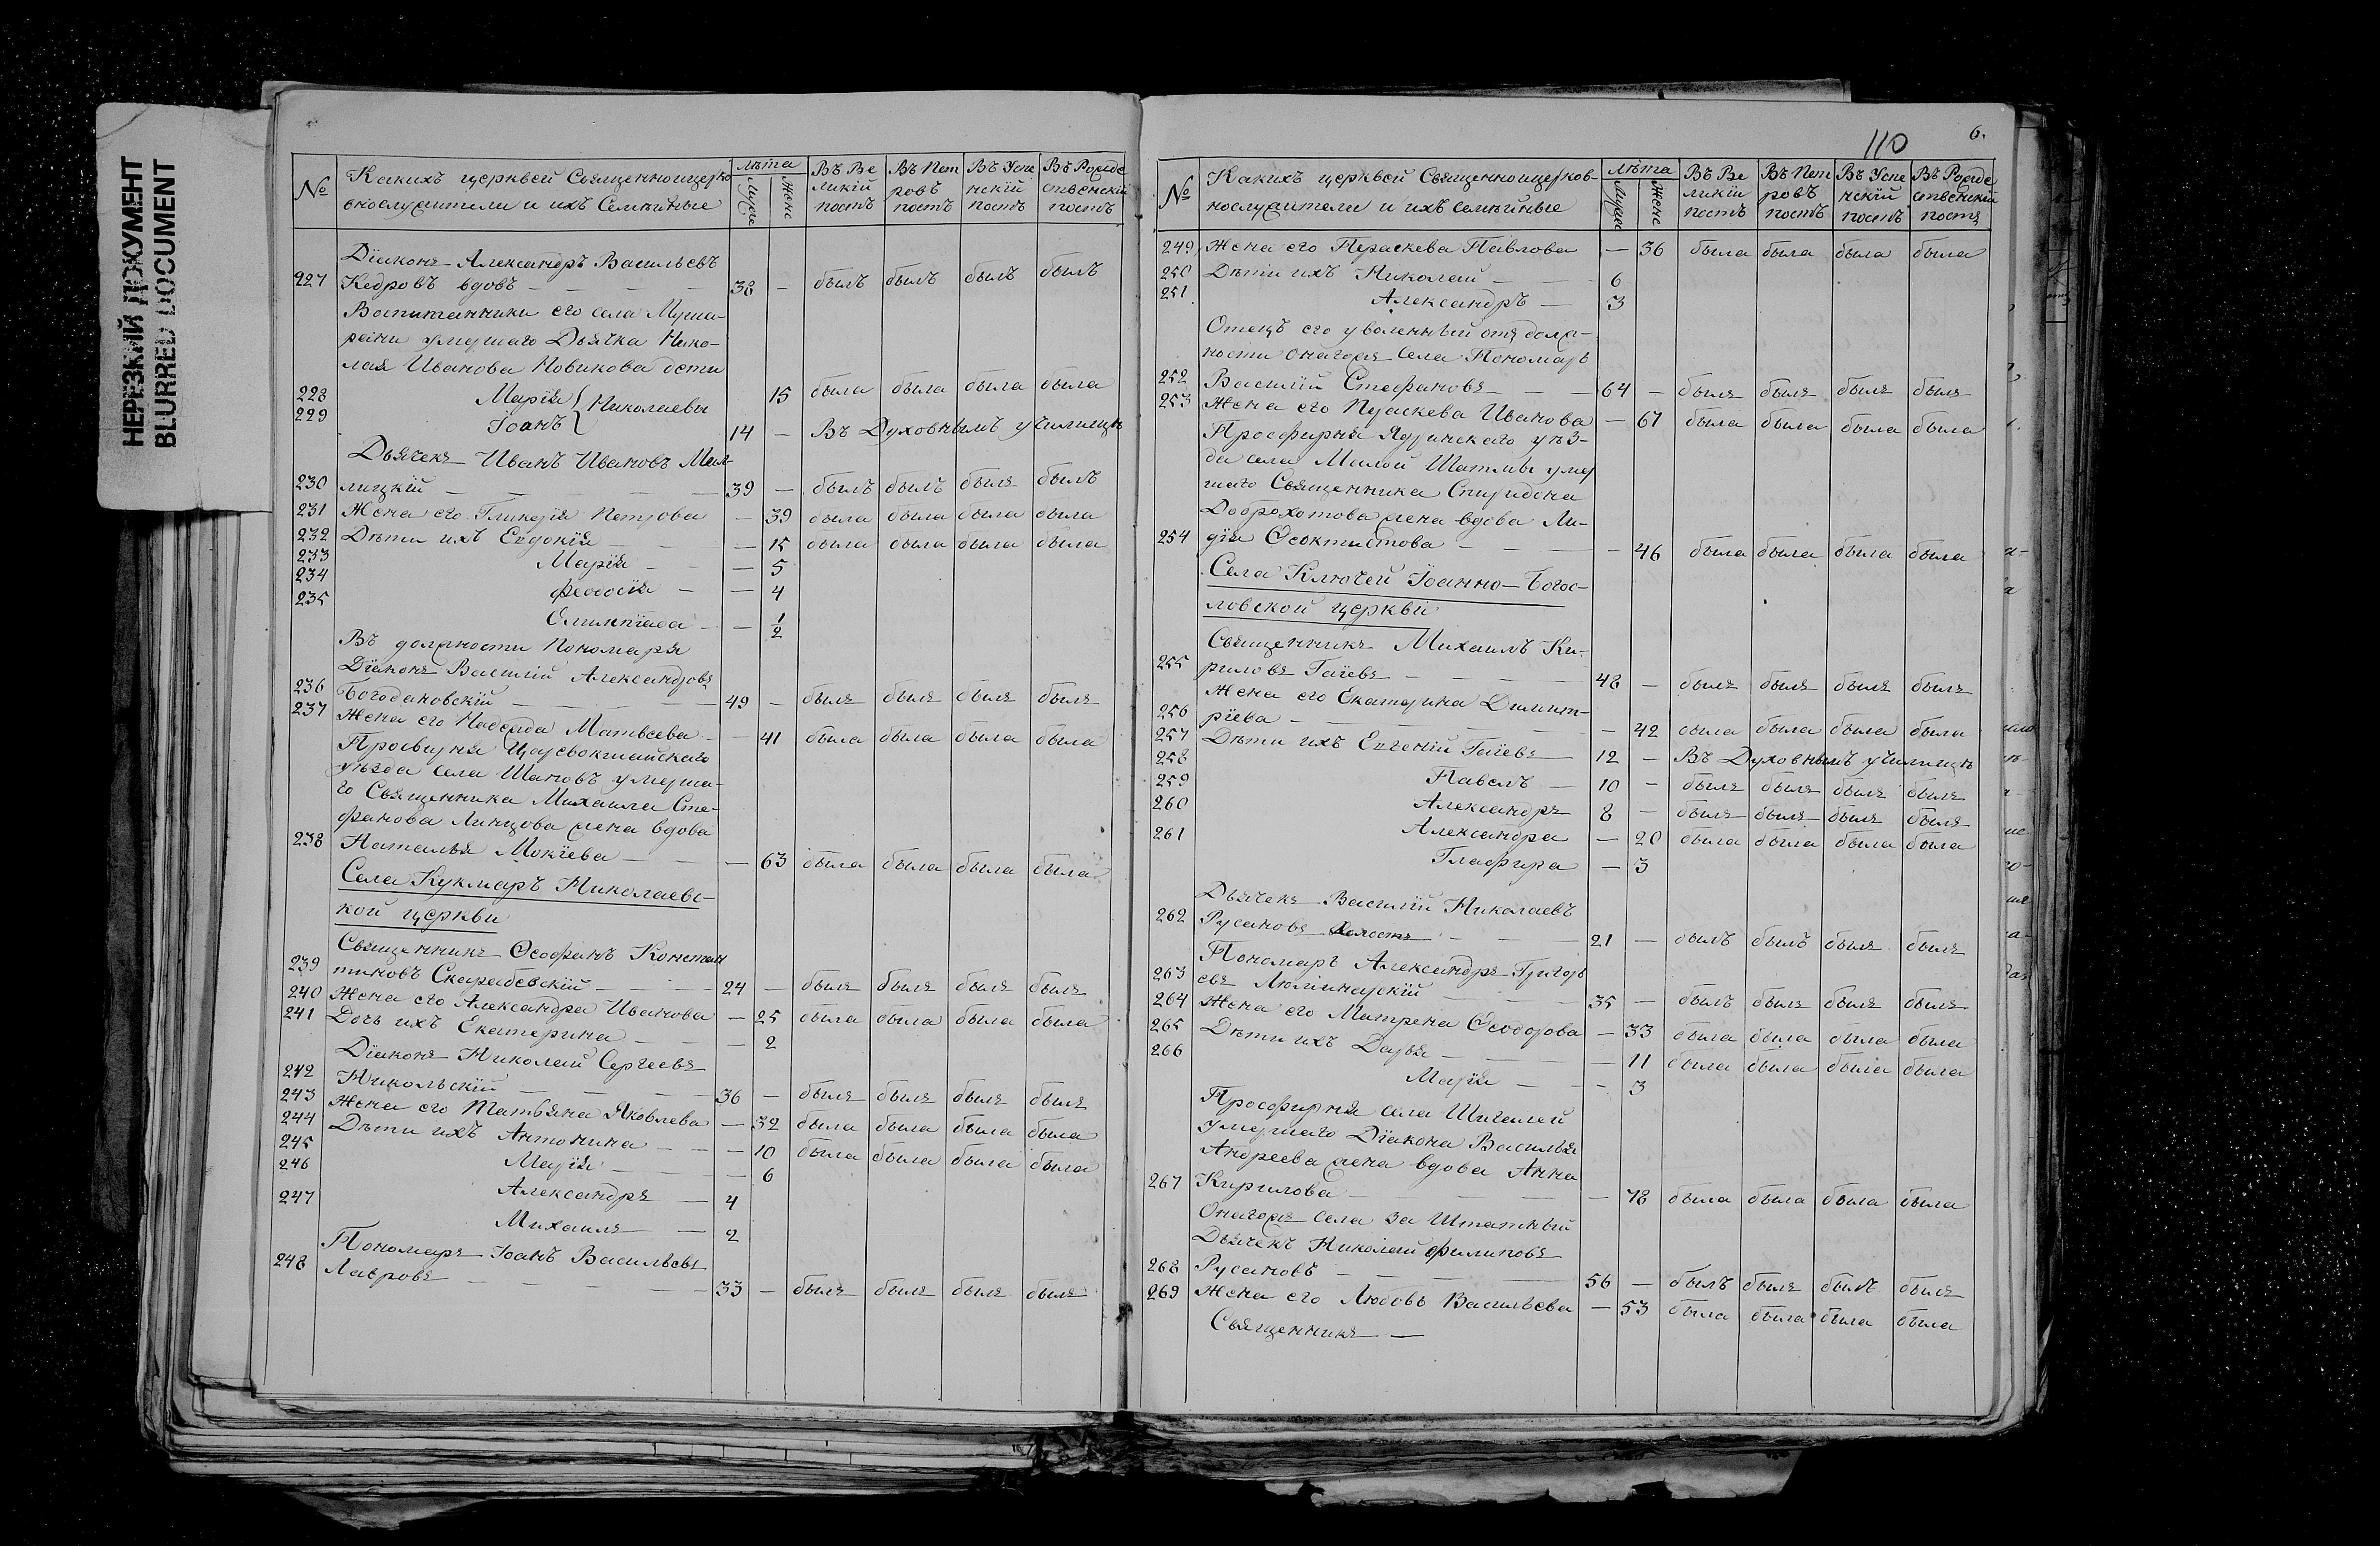 НЕРЕЗКИЙ ДОКУМЕНТ
BLURRED DOCUMENT
№ Какихъ церквей Священноцерко Лѣта Въ Ве Въ Пет Въ Успе Въ Рожде
внослужители и ихъ Семѣйные Муже Женс ликій постъ ровъ постъ нскій постъ ственскій постъ
Діаконъ Александръ Васильевъ
227 Кедровъ вдовъ 38 — былъ былъ былъ былъ
Воспитанники его села Муша-
рани умершаго Дьячка Нико-
лая Иванова Новикова дети
228 Марія Николаевы 15 была была была была
229 Іоанъ 14 — Въ Духовномъ училищѣ
Дьячекъ Иванъ Ивановъ Мил-
230 лицкій 39 — былъ былъ былъ былъ
231 Жена его Гликерія Петрова — 39 была была была была
232 Дѣти ихъ Евдокія — 15 была была была была
233 Марія — 5
234 Феодосія — 4
235 Олимпіада — 1/2
Въ должности Пономаря
Діаконъ Василій Александровъ
236 Богодановскій 49 — былъ былъ былъ былъ
237 Жена его Надежда Матвѣева — 41 была была была была
Просвирня Царевокшайскаго
уѣзда села Шаповъ умерша-
го Священника Михаила Сте-
фанова Линцова жена вдова
238 Наталья Мокіева — 63 была была была была
Села Кукмаръ Николаевс-
кой церкви
Священникъ Ѳеофанъ Констан
239 тиновъ Скарабевскій 24 — былъ былъ былъ былъ
240 Жена его Александра Иванова — 25 была была была была
241 Дочь ихъ Екатерина — 2
Діаконъ Николай Сергеевъ
242 Никольскій 36 — былъ былъ былъ былъ
243 Жена его Татьяна Яковлева — 32 была была была была
244 Дѣти ихъ Антонина — 10 была была была была
245 Марія — 6
246 Александръ — 4
247 Михаилъ — 2
Пономаръ Іоанъ Васильевъ
248 Лавровъ 33 — былъ былъ былъ былъ
110 6.
№ Какихъ церквей Священноцерков- Лѣта Въ Ве Въ Пет Въ Успе Въ Рожде
нослужители и ихъ семѣйные Муже Женс ликій постъ ровъ постъ нскій постъ ственскій постъ
249 Жена его Параскева Павлова — 36 была была была была
250 Дѣти ихъ Николай 6
251 Александръ — 3
Отецъ его уволенный отъ долж-
ности онагожъ села Пономарь
252 Василій Стефановъ 64 — былъ былъ былъ былъ
253 Жена его Параскева Иванова — 67 была была была была
Просфирня Ядринскаго уѣз-
да села Малой Шатьмы умер
шаго Священника Спиридона
Доброхотова жена вдова Ли-
254 дія Ѳеоктистова — 46 была была была была
Села Ключей Іоанно-Богос-
ловской церкви
Священникъ Михаилъ Ки-
255 риловъ Гаіевъ 48 — былъ былъ былъ былъ
Жена его Екатерина Димит-
256 ріева — 42 была была была была
257 Дѣти ихъ Евгеній Гаіевъ 12 — Въ Духовномъ училищѣ
258 Павелъ — 10 — былъ былъ былъ былъ
259 Александръ 8 — былъ былъ былъ былъ
260 Александра — 20 была была была была
261 Глафира — 3
Дьячекъ Василій Николаевъ
262 Русановъ Холостъ 21 — былъ былъ былъ былъ
Пономарь Александръ Григорь
263 евъ Люминарскій 35 — былъ былъ былъ былъ
264 Жена его Матрена Ѳеодорова — 33 была была была была
265 Дѣти ихъ Дарья — 11 была была была была
266 Марія — 3
Просфирня села Шигалей
умершаго Діакона Василья
Андреева жена вдова Анна
267 Кирилова — 78 была была была была
Онагожъ села за Штатный
Дьячекъ Николай Филиповъ
268 Русановъ 56 — былъ былъ былъ былъ
269 Жена его Любовь Васильева — 53 была была была была
Священникъ —